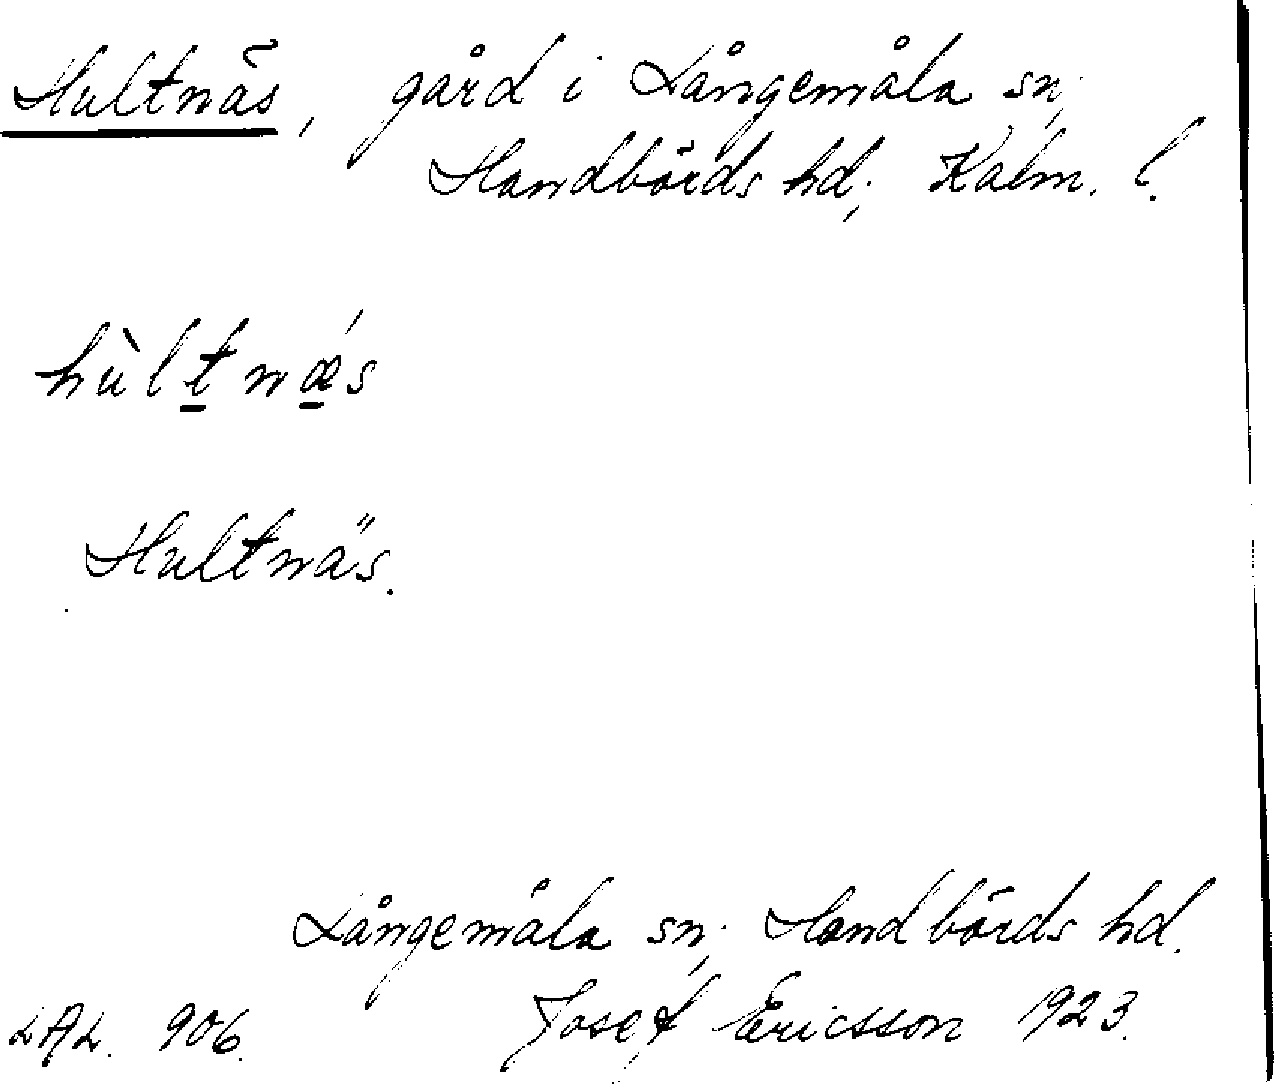 Hultnäs, gård i Långemåla sn;
Handbörds hd; Kalm. l.
hùltnǽs
Hultnäs.
Långemåla sn; Handbörds hd.
LAL. 906. Josef Ericsson 1923.